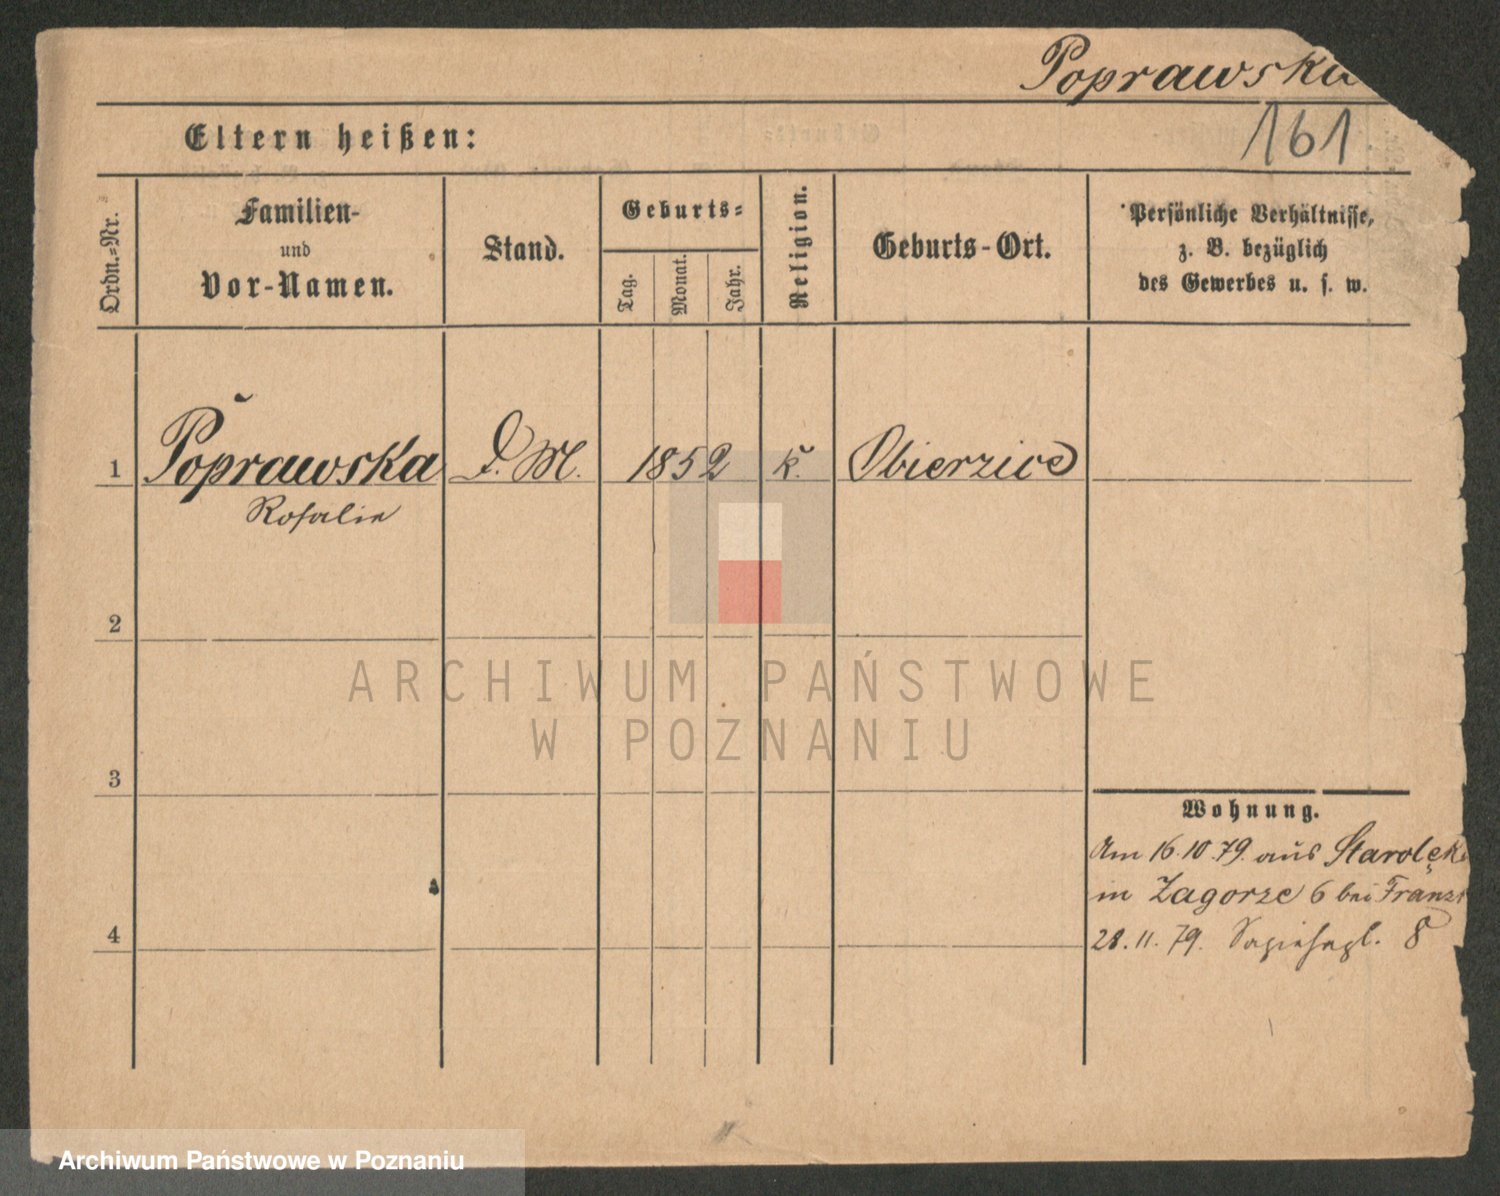 Poprawska
161
Eltern heißen:
Ordn.-Nr.
Familien-
und
Vor-Namen.
Stand.
Geburts-
Tag.
Monat.
Jahr.
Religion.
Geburts-Ort.
Persönliche Verhältnisse,
z. B. bezüglich
des Gewerbes u. s. w.
1 Poprawska D. M. 1852 k. Obierzice
Rosalie
2
3
4
Wohnung.
Am 16.10.79. aus Starolęk
in Zagorze 6 bei Franz
28.11.79. 8
ARCHIWUM PAŃSTWOWE
W POZNANIU
Archiwum Państwowe w Poznaniu